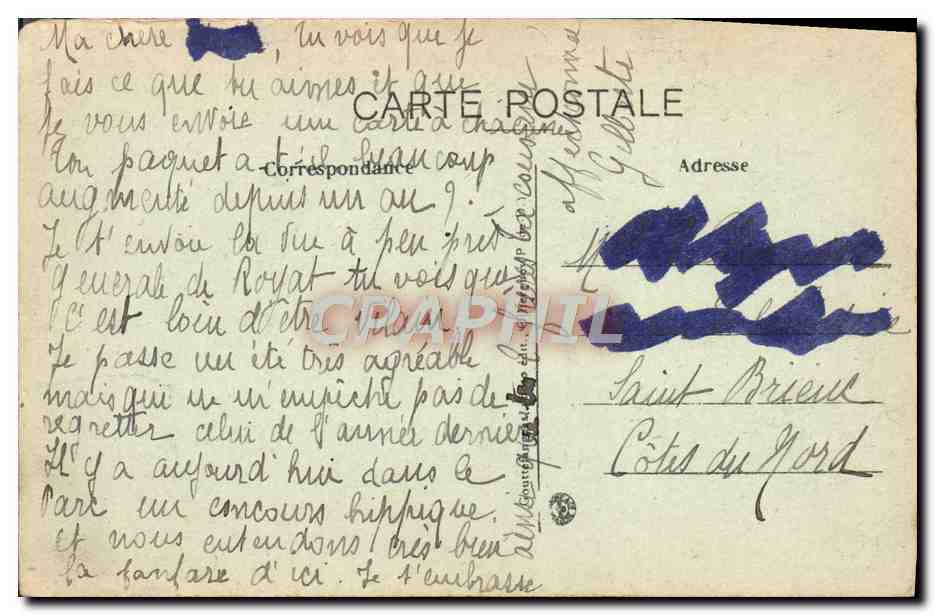 Ma chere , tu vois que je
fais ce que tu aimes et que
je vous envoie une carte à chacune
Ton paquet a t'il beaucoup
augmenté depuis un an ?
Je t'envoie la vue à peu près
generale de Royat tu vois que
c'est loin d'être vilain.
Je passe un été très agréable
mais qui ne m'empêche pas de
regretter celui de l'année dernière
Il y a aujourd'hui dans le
Parc un concours hippique.
et nous entendons très bien
la fanfare d'ici. Je t'embrasse
ainsi que
ta cousine
affectionnée
Gilberte
CARTE POSTALE
Correspondance
Adresse
Saint Brieuc
Côtes du Nord
CPAPHIL